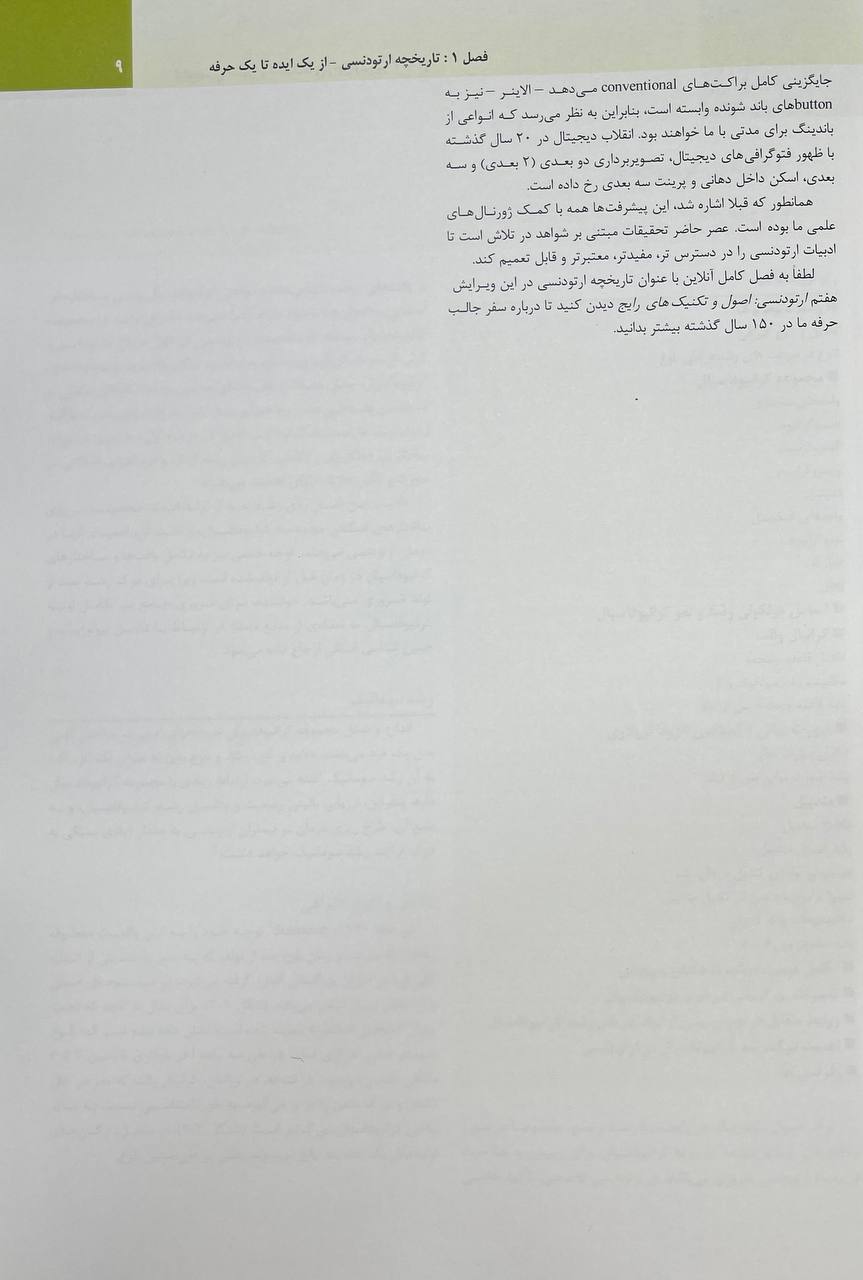 فصل ۱ : تاریخچه ارتودنسی - از یک ایده تا یک حرفه
۹
جایگزینی کامل براکت‌های conventional می‌دهد – الاینر – نیز به
buttonهای باند شونده وابسته است، بنابراین به نظر می‌رسد که انواعی از
باندینگ برای مدتی با ما خواهند بود. انقلاب دیجیتال در ۲۰ سال گذشته
با ظهور فتوگرافی‌های دیجیتال، تصویربرداری دو بعدی (۲ بعدی) و سه
بعدی، اسکن داخل دهانی و پرینت سه بعدی رخ داده است.
همانطور که قبلا اشاره شد، این پیشرفت‌ها همه با کمک ژورنال‌های
علمی ما بوده است. عصر حاضر تحقیقات مبتنی بر شواهد در تلاش است تا
ادبیات ارتودنسی را در دسترس تر، مفیدتر، معتبرتر و قابل تعمیم کند.
لطفاً به فصل کامل آنلاین با عنوان تاریخچه ارتودنسی در این ویرایش
هفتم ارتودنسی: اصول و تکنیک های رایج دیدن کنید تا درباره سفر جالب
حرفه ما در ۱۵۰ سال گذشته بیشتر بدانید.